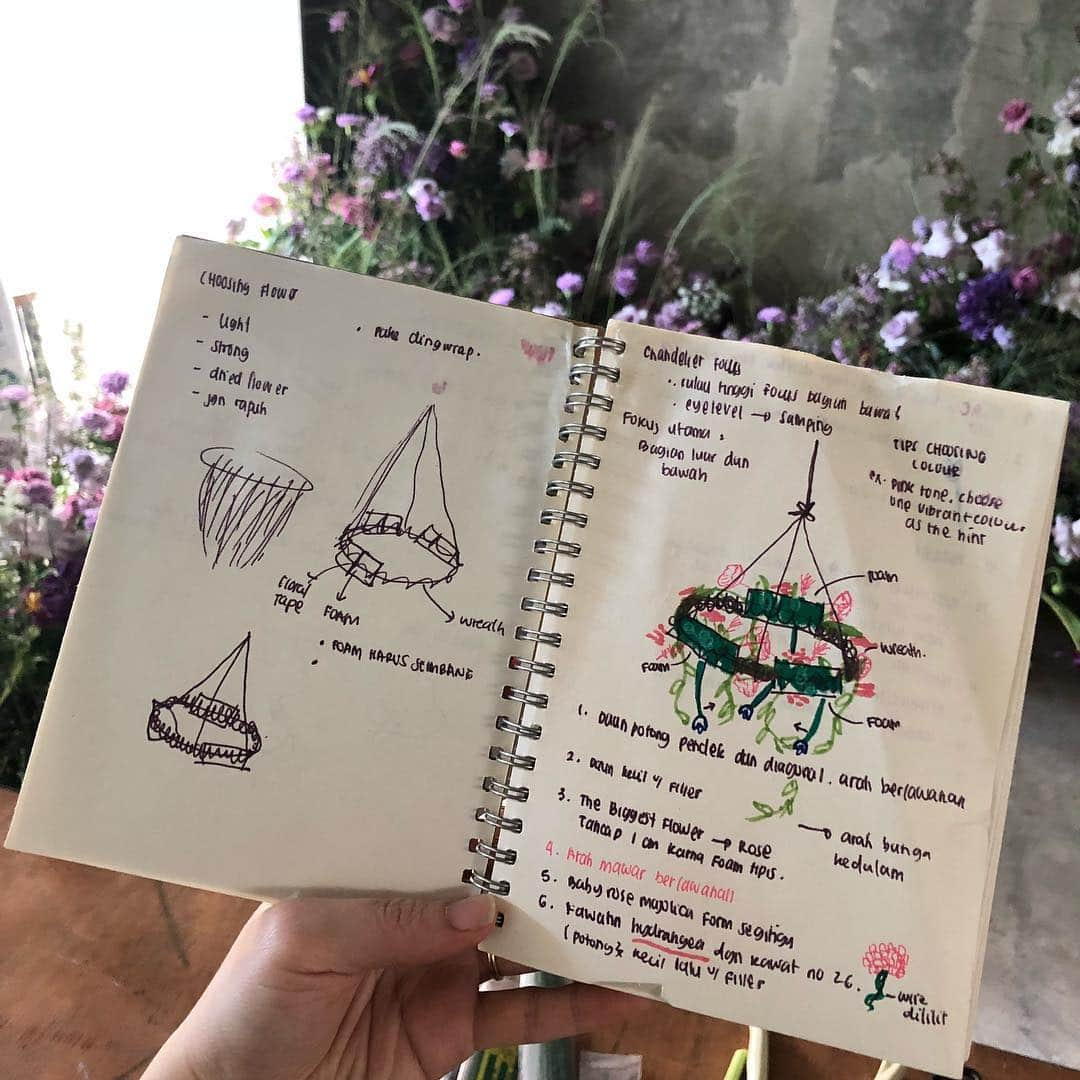 CHOOSING FLOWE
- Light
- strong
- dried flower
- Jgn rapuh
• Pake clingwrap.
Floral
Tape
FOAM
wreath
• FOAM HARUS SEIMBANG
•
Chandelier Focus
• kalau tinggi focus bagian bawah
• eyelevel → samping
Fokus utama :
Bagian luar dan
bawah
TIPS CHOOSING
COLOUR
ex. Pink tone, choose
one vibrant colour
as the hint
Foam
wreath.
Foam
FOAM
1. Daun potong pendek dan diagonal. arah berlawanan
2. Daun kecil u/ Filler
3. The Biggest Flower → Rose
Tancap 1 cm karna Foam tipis.
→ arah bunga
kedalam
4. Arah mawar berlawanan
5. Baby rose majolica form segitiga
6. Kawatin hydrangea dgn kawat no 26.
(potong2 kecil lalu u/ Filler
wire
dililit